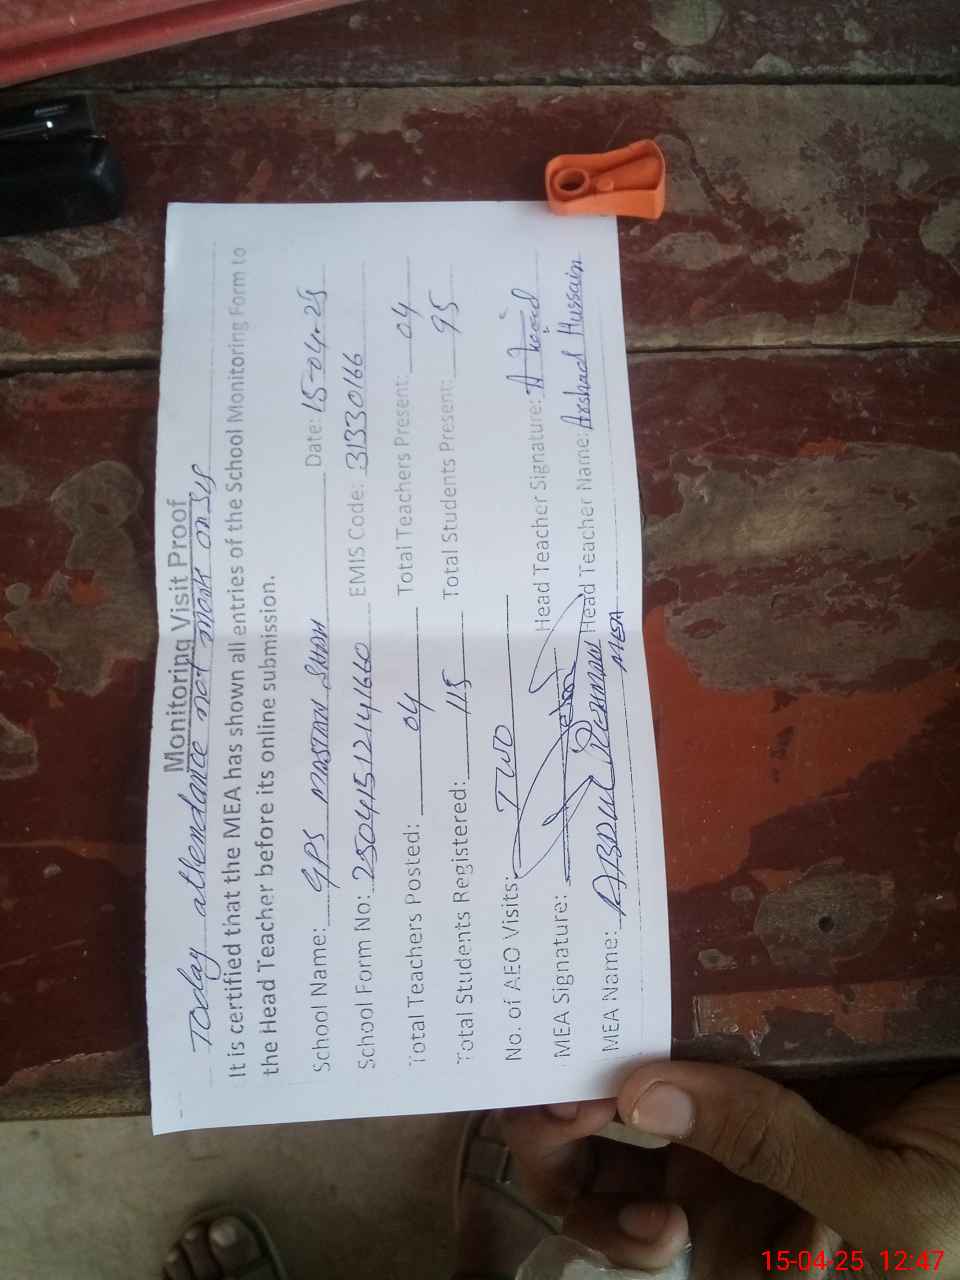 Monitoring Visit Proof
Today attendance not mark on SIS
It is certified that the MEA has shown all entries of the School Monitoring Form to
the Head Teacher before its online submission.
School Name: GPS MASTAN SHAH Date: 15-04-25
School Form No: 25041512141660 EMIS Code: 31330166
Total Teachers Posted: 04 Total Teachers Present: 04
Total Students Registered: 115 Total Students Present: 95
No. of AEO Visits: TWO
MEA Signature: Head Teacher Signature:
MEA Name: ABDUL REHMAN Head Teacher Name: Arshad Hussain
MEA
15-04-25 12:47